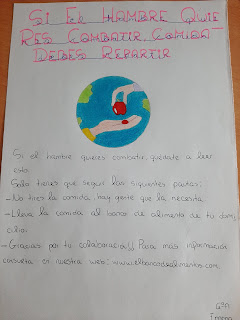 SI EL HAMBRE QUIE
RES COMBATIR, COMIDA
DEBES REPARTIR
Si el hambre quieres combatir, quédate a leer
esto.
Solo tienes que seguir las siguientes pautas:
-No tires la comida, hay gente que la necesita.
-Lleva la comida al banco de alimento de tu domi
cilio.
-Gracias por tu colaboración!! Para más información
consulta en nuestra web: www.elbancodealimentos.com.
4ºA
Imma